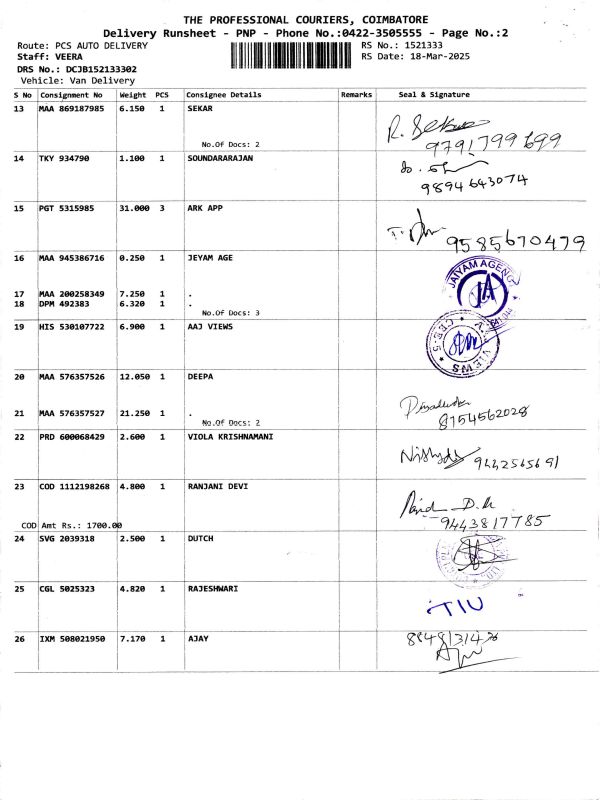 THE PROFESSIONAL COURIERS, COIMBATORE
Delivery Runsheet - PNP - Phone No.:0422-3505555 - Page No.:2
Route: PCS AUTO DELIVERY RS No.: 1521333
Staff: VEERA RS Date: 18-Mar-2025
DRS No.: DCJB152133302
Vehicle: Van Delivery
S No Consignment No Weight PCS Consignee Details Remarks Seal & Signature
13 MAA 869187985 6.150 1 SEKAR
R. Sekar
No.Of Docs: 2 9791799699
14 TKY 934790 1.100 1 SOUNDARARAJAN
9894643074
15 PGT 5315985 31.000 3 ARK APP
9585670479
16 MAA 945386716 0.250 1 JEYAM AGE
JAIYAM AGENC
17 MAA 200258349 7.250 1 .
18 DPM 492383 6.320 1 .
No.Of Docs: 3
19 HIS 530107722 6.900 1 AAJ VIEWS
VIEWS
20 MAA 576357526 12.050 1 DEEPA
21 MAA 576357527 21.250 1 .
No.Of Docs: 2 8754562028
22 PRD 600068429 2.600 1 VIOLA KRISHNAMANI
9442565691
23 COD 1112198268 4.800 1 RANJANI DEVI
9443817785
COD Amt Rs.: 1700.00
24 SVG 2039318 2.500 1 DUTCH
25 CGL 5025323 4.820 1 RAJESHWARI
26 IXM 508021950 7.170 1 AJAY